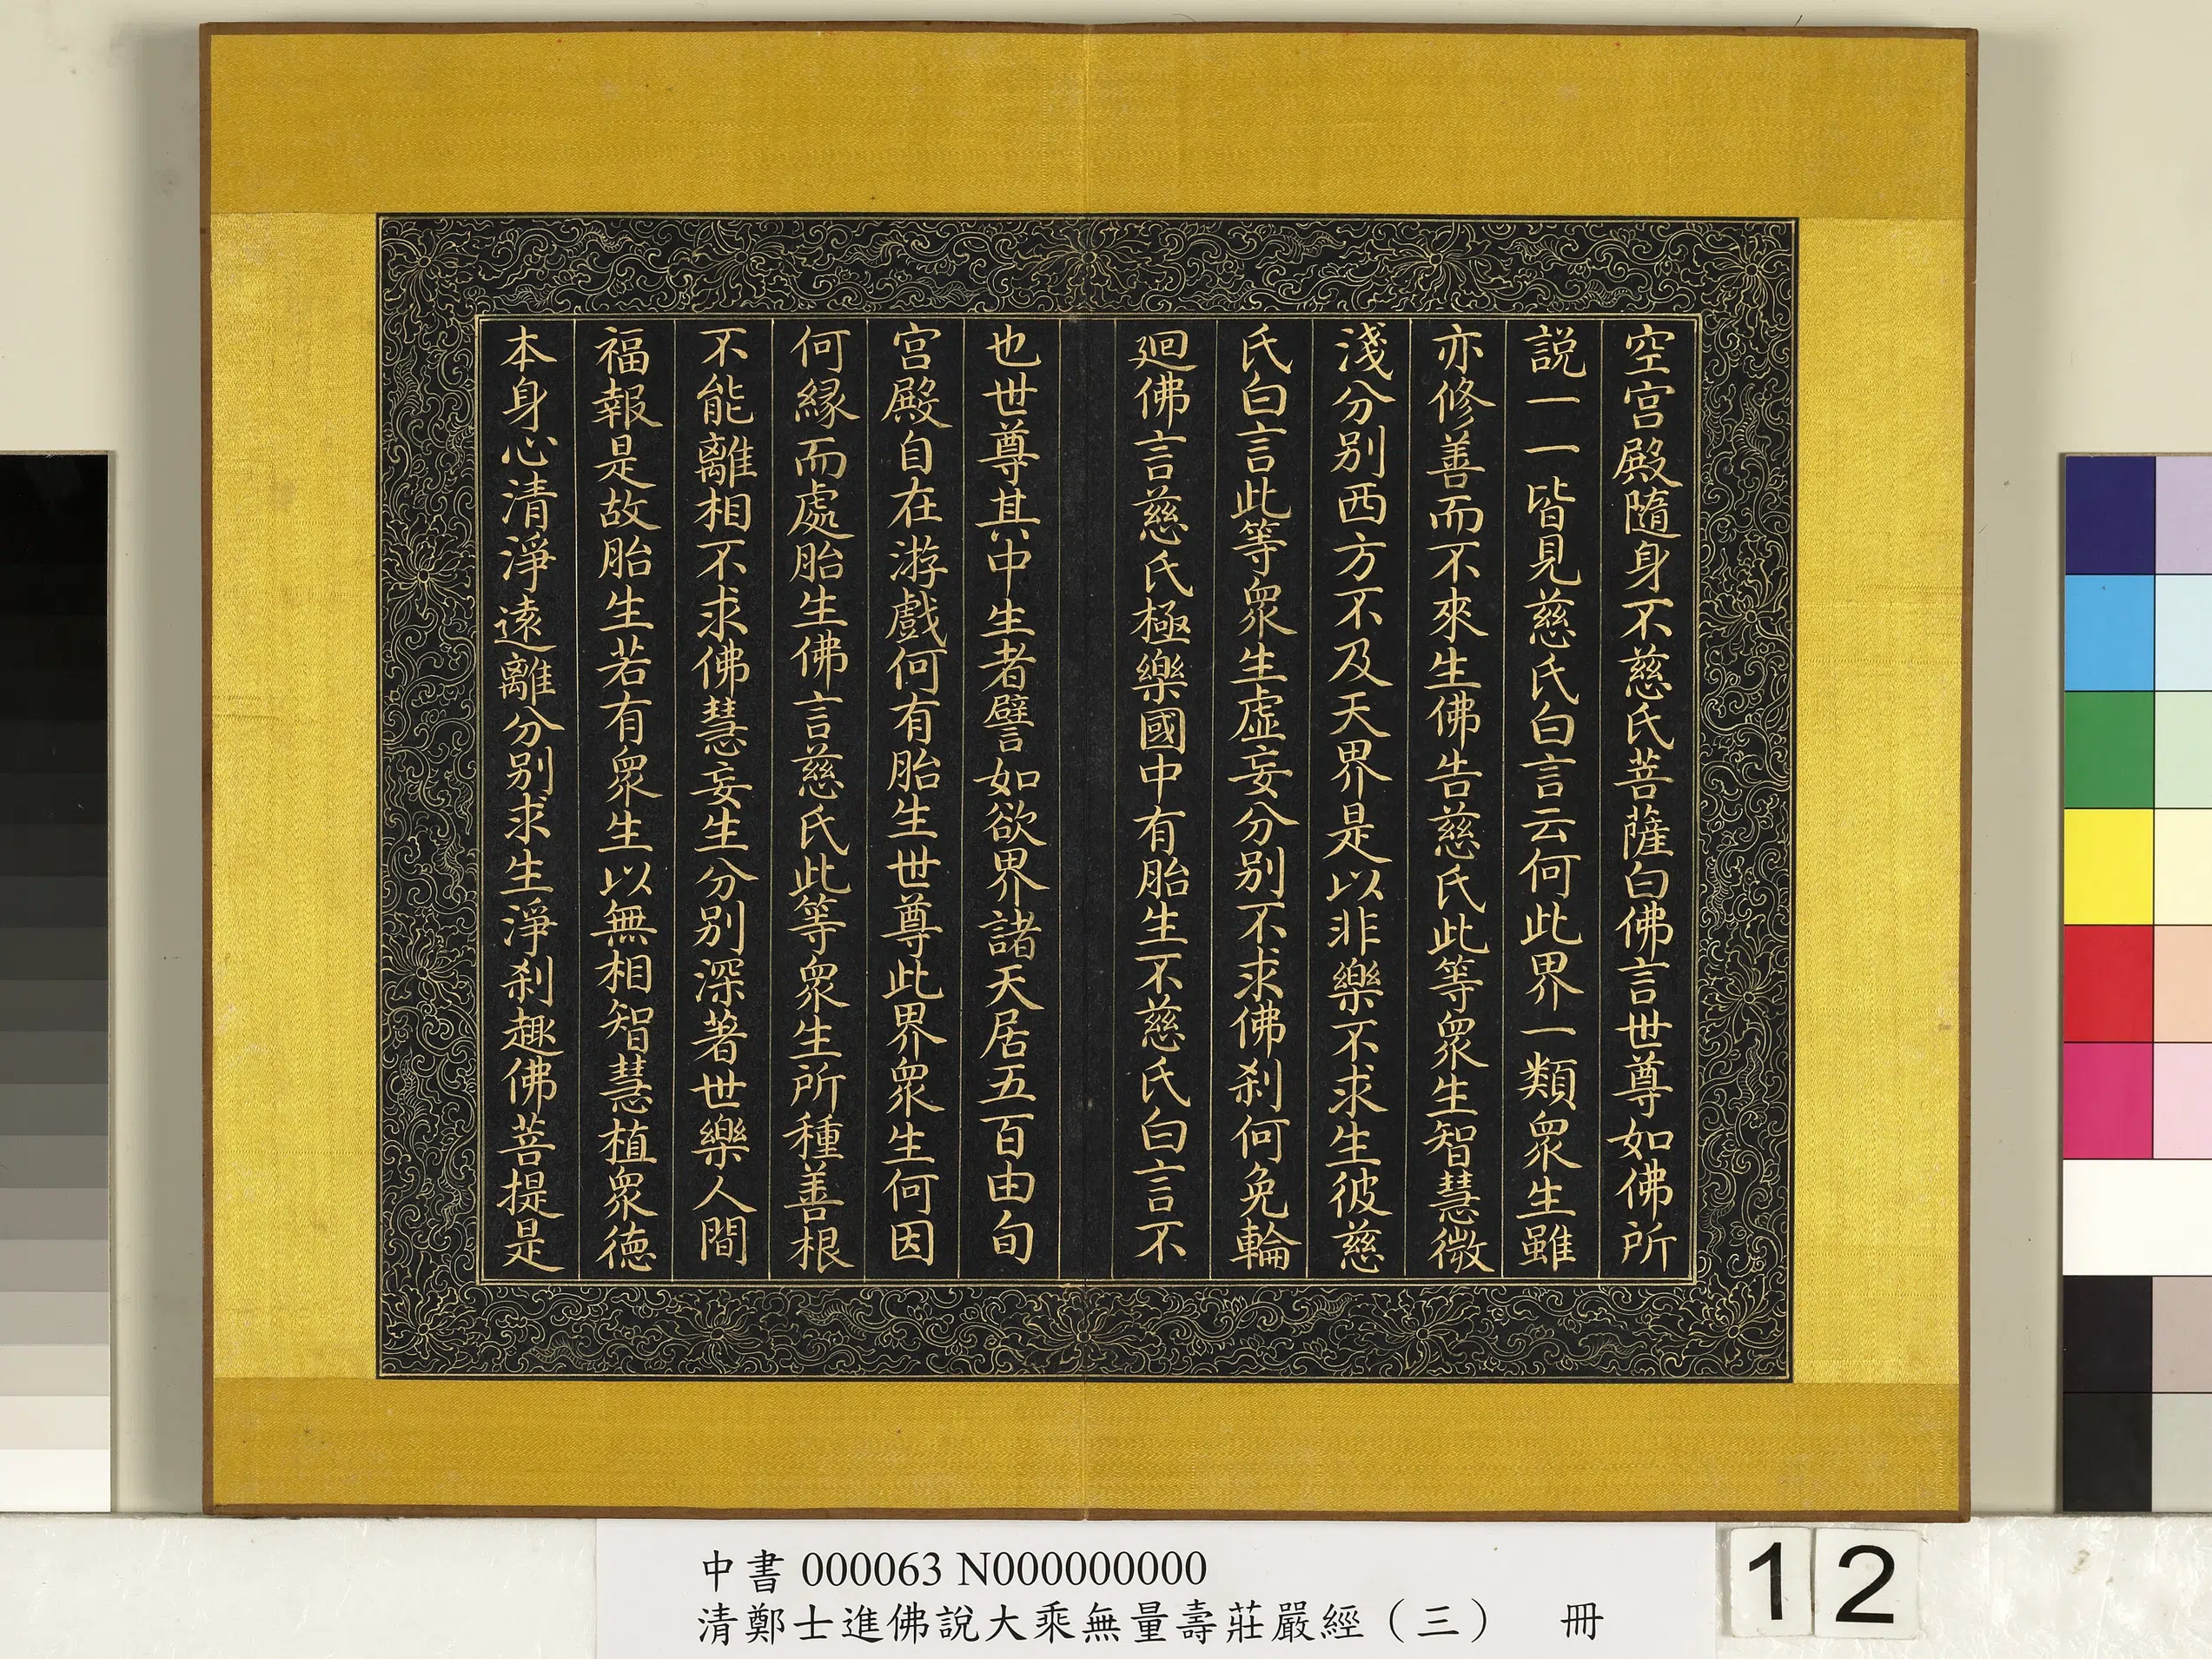 空宮殿隨身不慈氏菩薩白佛言世尊如佛所
説一一皆見慈氏白言云何此界一類衆生雖
亦修善而不來生佛告慈氏此等衆生智慧微
淺分别西方不及天界是以非樂不求生彼慈
氏白言此等衆生虛妄分别不求佛刹何免輪
迴佛言慈氏極樂國中有胎生不慈氏白言不
也世尊其中生者譬如欲界諸天居五百由旬
宮殿自在游戲何有胎生世尊此界衆生何因
何縁而處胎生佛言慈氏此等衆生所種善根
不能離相不求佛慧妄生分别深著世樂人間
福報是故胎生若有衆生以無相智慧植衆德
本身心清淨遠離分别求生淨刹趣佛菩提是
中書 000063 N000000000
清鄭士進佛說大乘無量壽莊嚴經（三） 冊
12